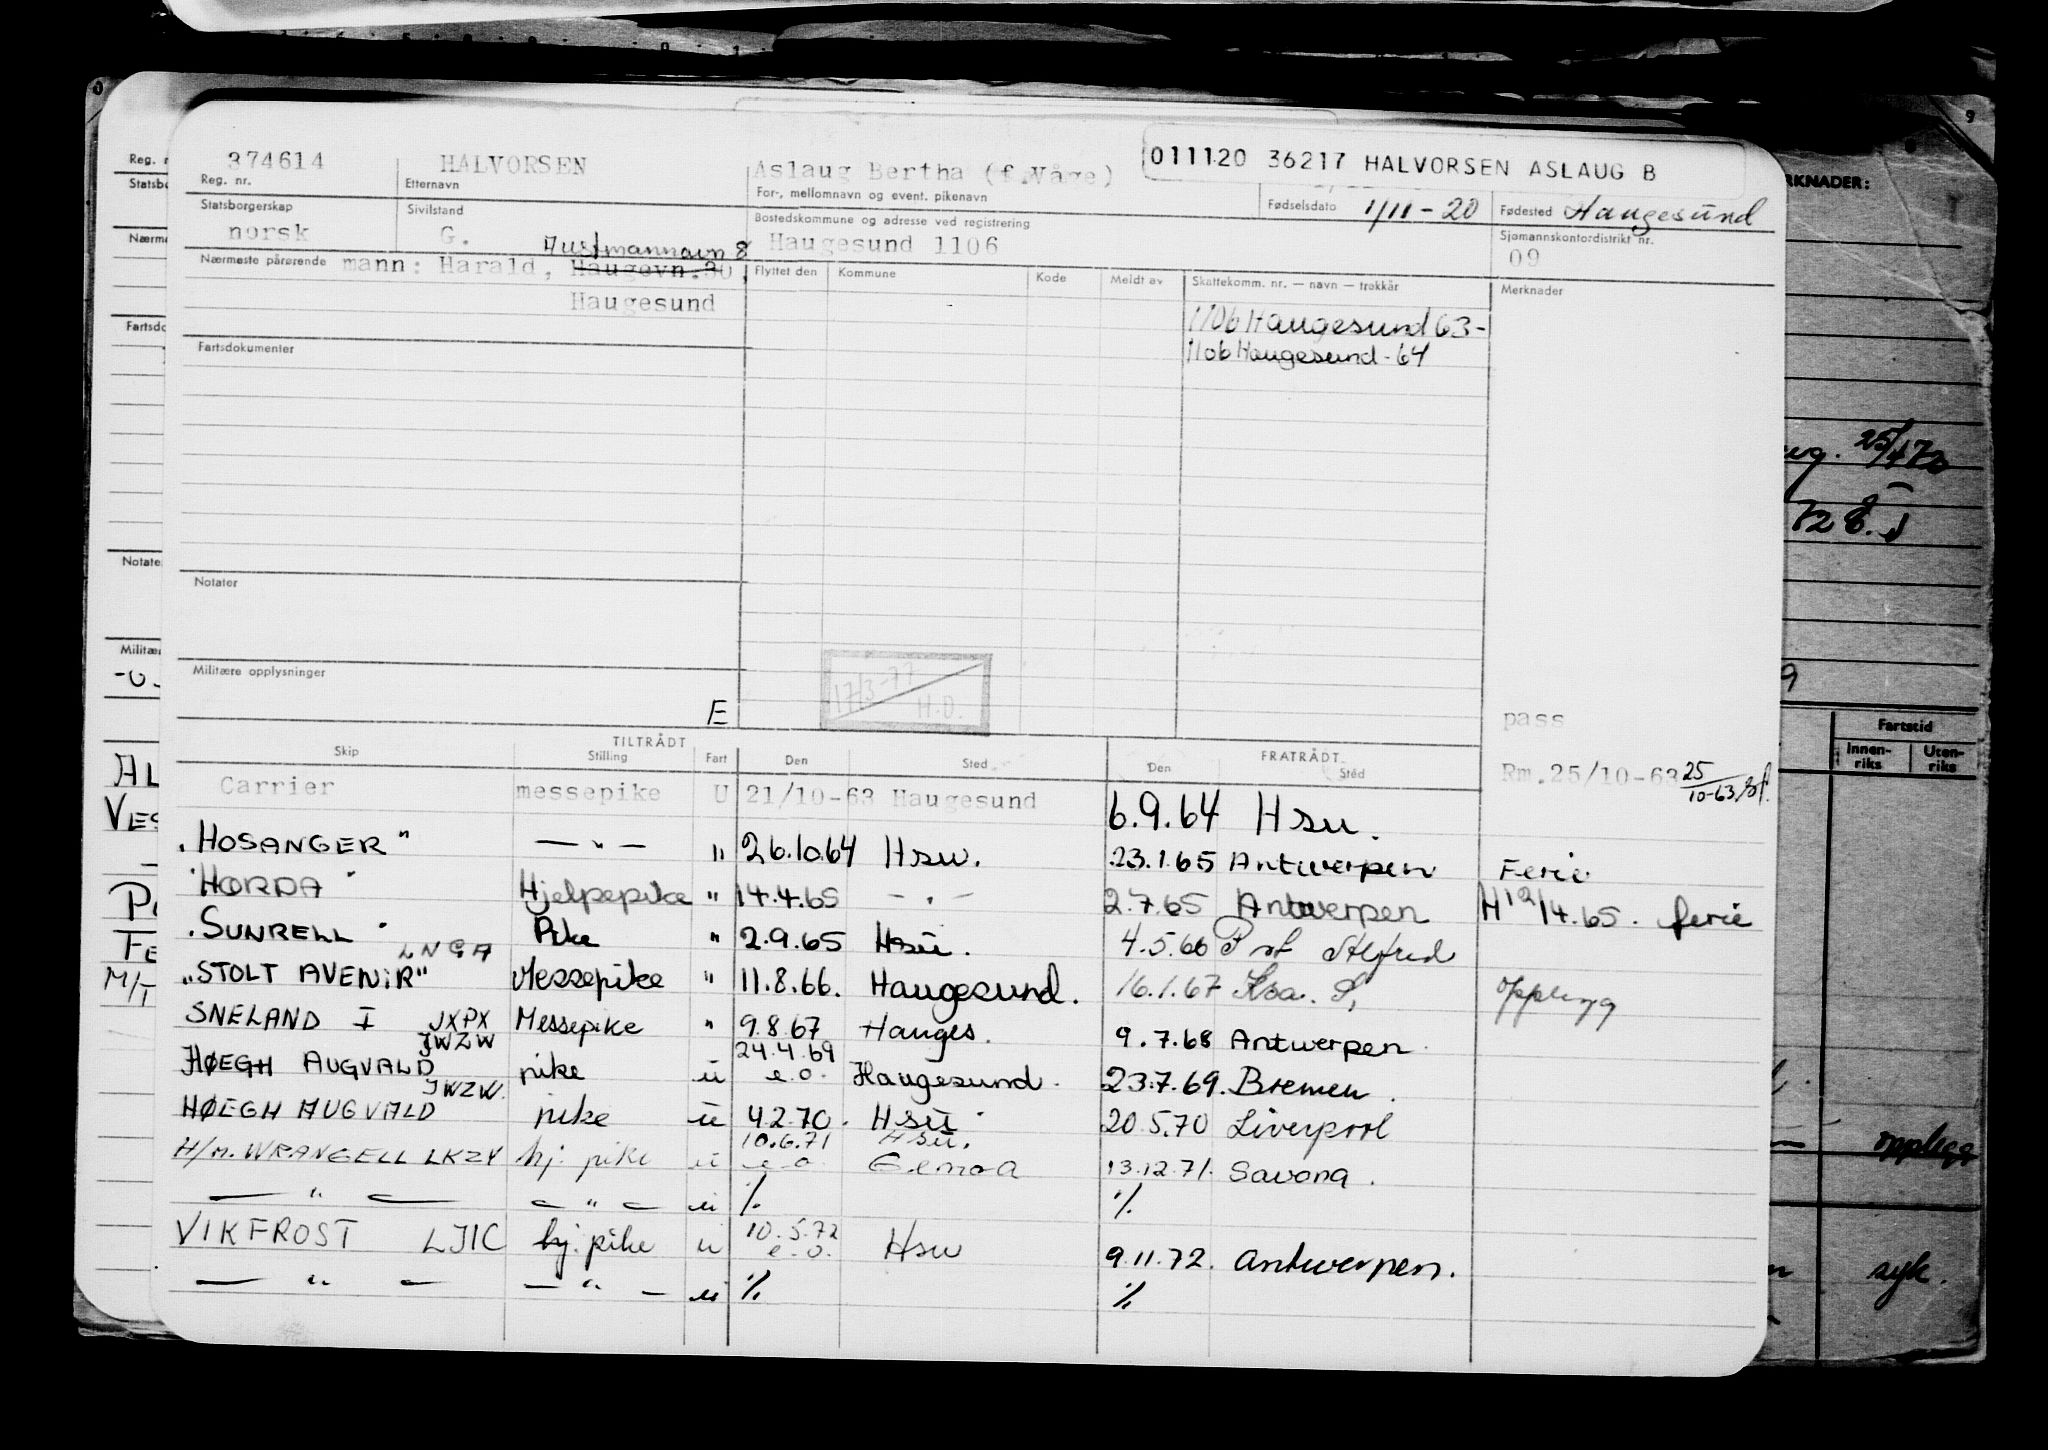 374614 HALVORSEN Aslaug Bertha (f.Våge) 011120 36217 HALVORSEN ASLAUG B
Reg. nr. Etternavn For-, mellomnavn og event. pikenavn Fødselsdato 1/11-20 Fødested Haugesund
Statsborgerskap Sivilstand Bostedskommune og adresse ved registrering Sjømannskontordistrikt nr.
norsk G. Haugesund 1106 09
Austmannavn 8
Nærmeste pårørende mann: Harald, Haugevn.30, Flyttet den Kommune Kode Meldt av Skattekomm. nr. — navn — trekkår Merknader
Haugesund
1106 Haugesund 63-
1106 Haugesund - 64
Fartsdokumenter
Notater
Militære opplysninger
17/3-77
H.D.
E
pass
TILTRÅDT FRATRÅDT
Skip Stilling Fart Den Sted Den Sted
Rm.25/10-63 25/10-63
Carrier messepike U 21/10-63 Haugesund 6.9.64 Hsu.
"HOSANGER" — " — " 26.10.64 Hsu. 23.1.65 Antwerpen Ferie
"HORDA" Hjelpepike " 14.4.65 - " - 2.7.65 Antwerpen H 12/4.65. ferie
"SUNRELL" Pike " 2.9.65 Hsu. 4.5.66 P rt Alfred
LNGA
"STOLT AVENIR" Messepike " 11.8.66. Haugesund. 16.1.67 Opplegg
SNELAND I JXPX Messepike " 9.8.67 Hauges. 9.7.68 Antwerpen
JWZW 24.4.69
HØEGH AUGVALD pike u e.o. Haugesund. 23.7.69. Bremen.
JWZW.
HØEGH AUGVALD pike u 4.2.70. Hsu. 20.5.70 Liverpool
10.6.71 Hsu.
H/m. WRANGELL LKZY hj. pike u e.o. Genoa 13.12.71. Savona.
— " — — " — u % %
VIKFROST LJIC hj. pike u 10.5.72 e.o. Hsu 9.11.72. Antwerpen.
— " — — " — u % %
Reg. n
Statsbo
Nærme
Fartsdo
Notate
Militær
AL
VES
M/T
RKNADER:
25/4 72
Fartstid
Innen-riks Uten-riks
opplegg
syk.
9